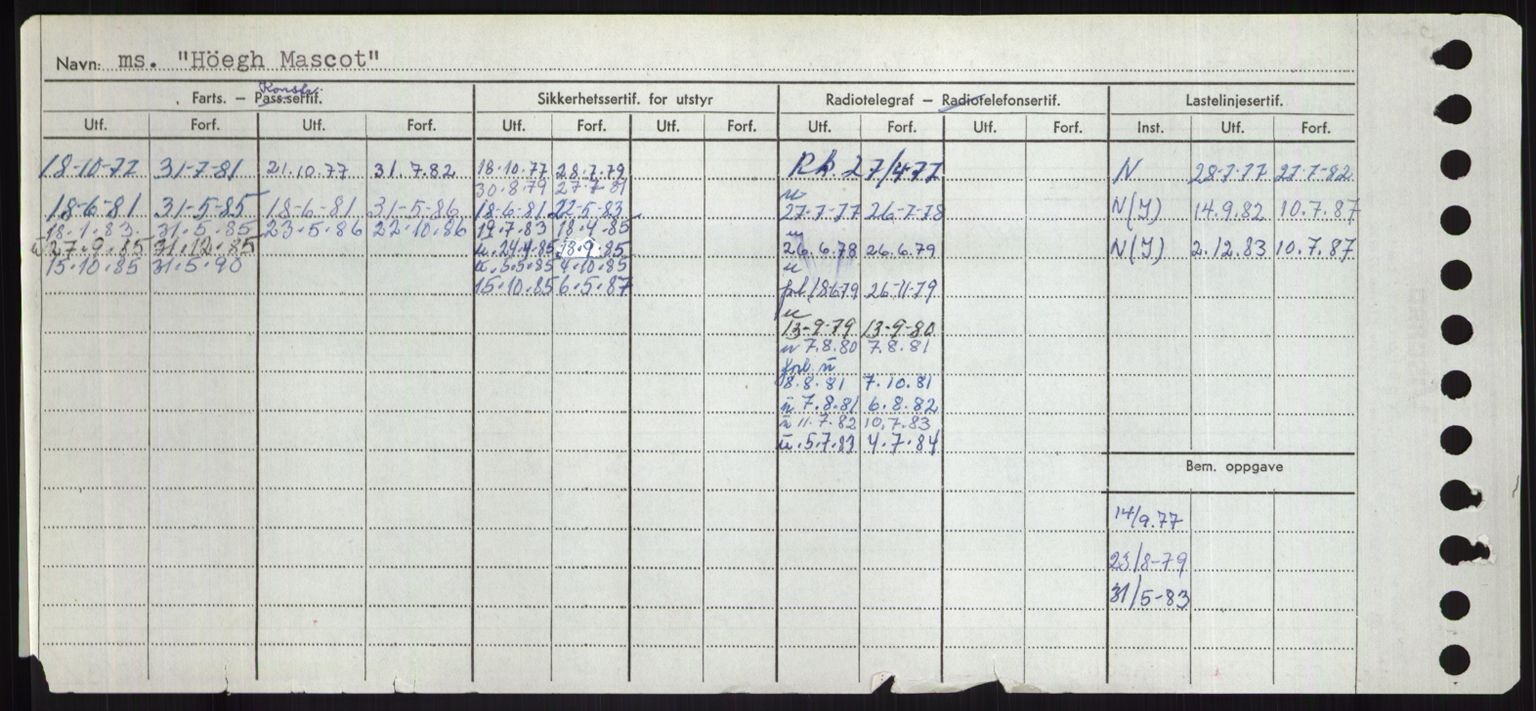 Navn: ms. "Höegh Mascot"
Farts. – Pass.sertif. Konstr.
Sikkerhetssertif. for utstyr
Radiotelegraf – Radiotelefonsertif.
Lastelinjesertif.
Utf. Forf. Utf. Forf. Utf. Forf. Utf. Forf. Utf. Forf. Utf. Forf. Inst. Utf. Forf.
18-10-77 31-7-81 21.10.77 31.7.82 18.10.77 28.7.79 Rk. 27/4-77 N 28-7-77 27-7-82
30.8.79 27.7.81
18-6-81 31-5-85 18-6-81 31-5-86 18-6-81 22-5-83 u 27-7-77 26-7-78 N(I) 14.9.82 10.7.87
18.1.83 31.5.85 23.5.86 22.10.86 19.7.83 18.4.85
u 27.9.85 31.12.85 u.24.4.85 18.9.85 u 26.6.78 26.6.79 N(I) 2.12.83 10.7.87
15.10.85 31.5.90 u.5.5.85 4.10.85
15.10.85 6.5.87 u fl/18679 26-11-79
u 13-9-79 13-9-80
u 7.8.80 7.8.81
forl u
18.8.81 7.10.81
u 7.8.81 6.8.82
u 11.7.82 10.7.83
u.5.7.83 4.7.84
Bem. oppgave
14/9.77
23/8-79
31/5-83